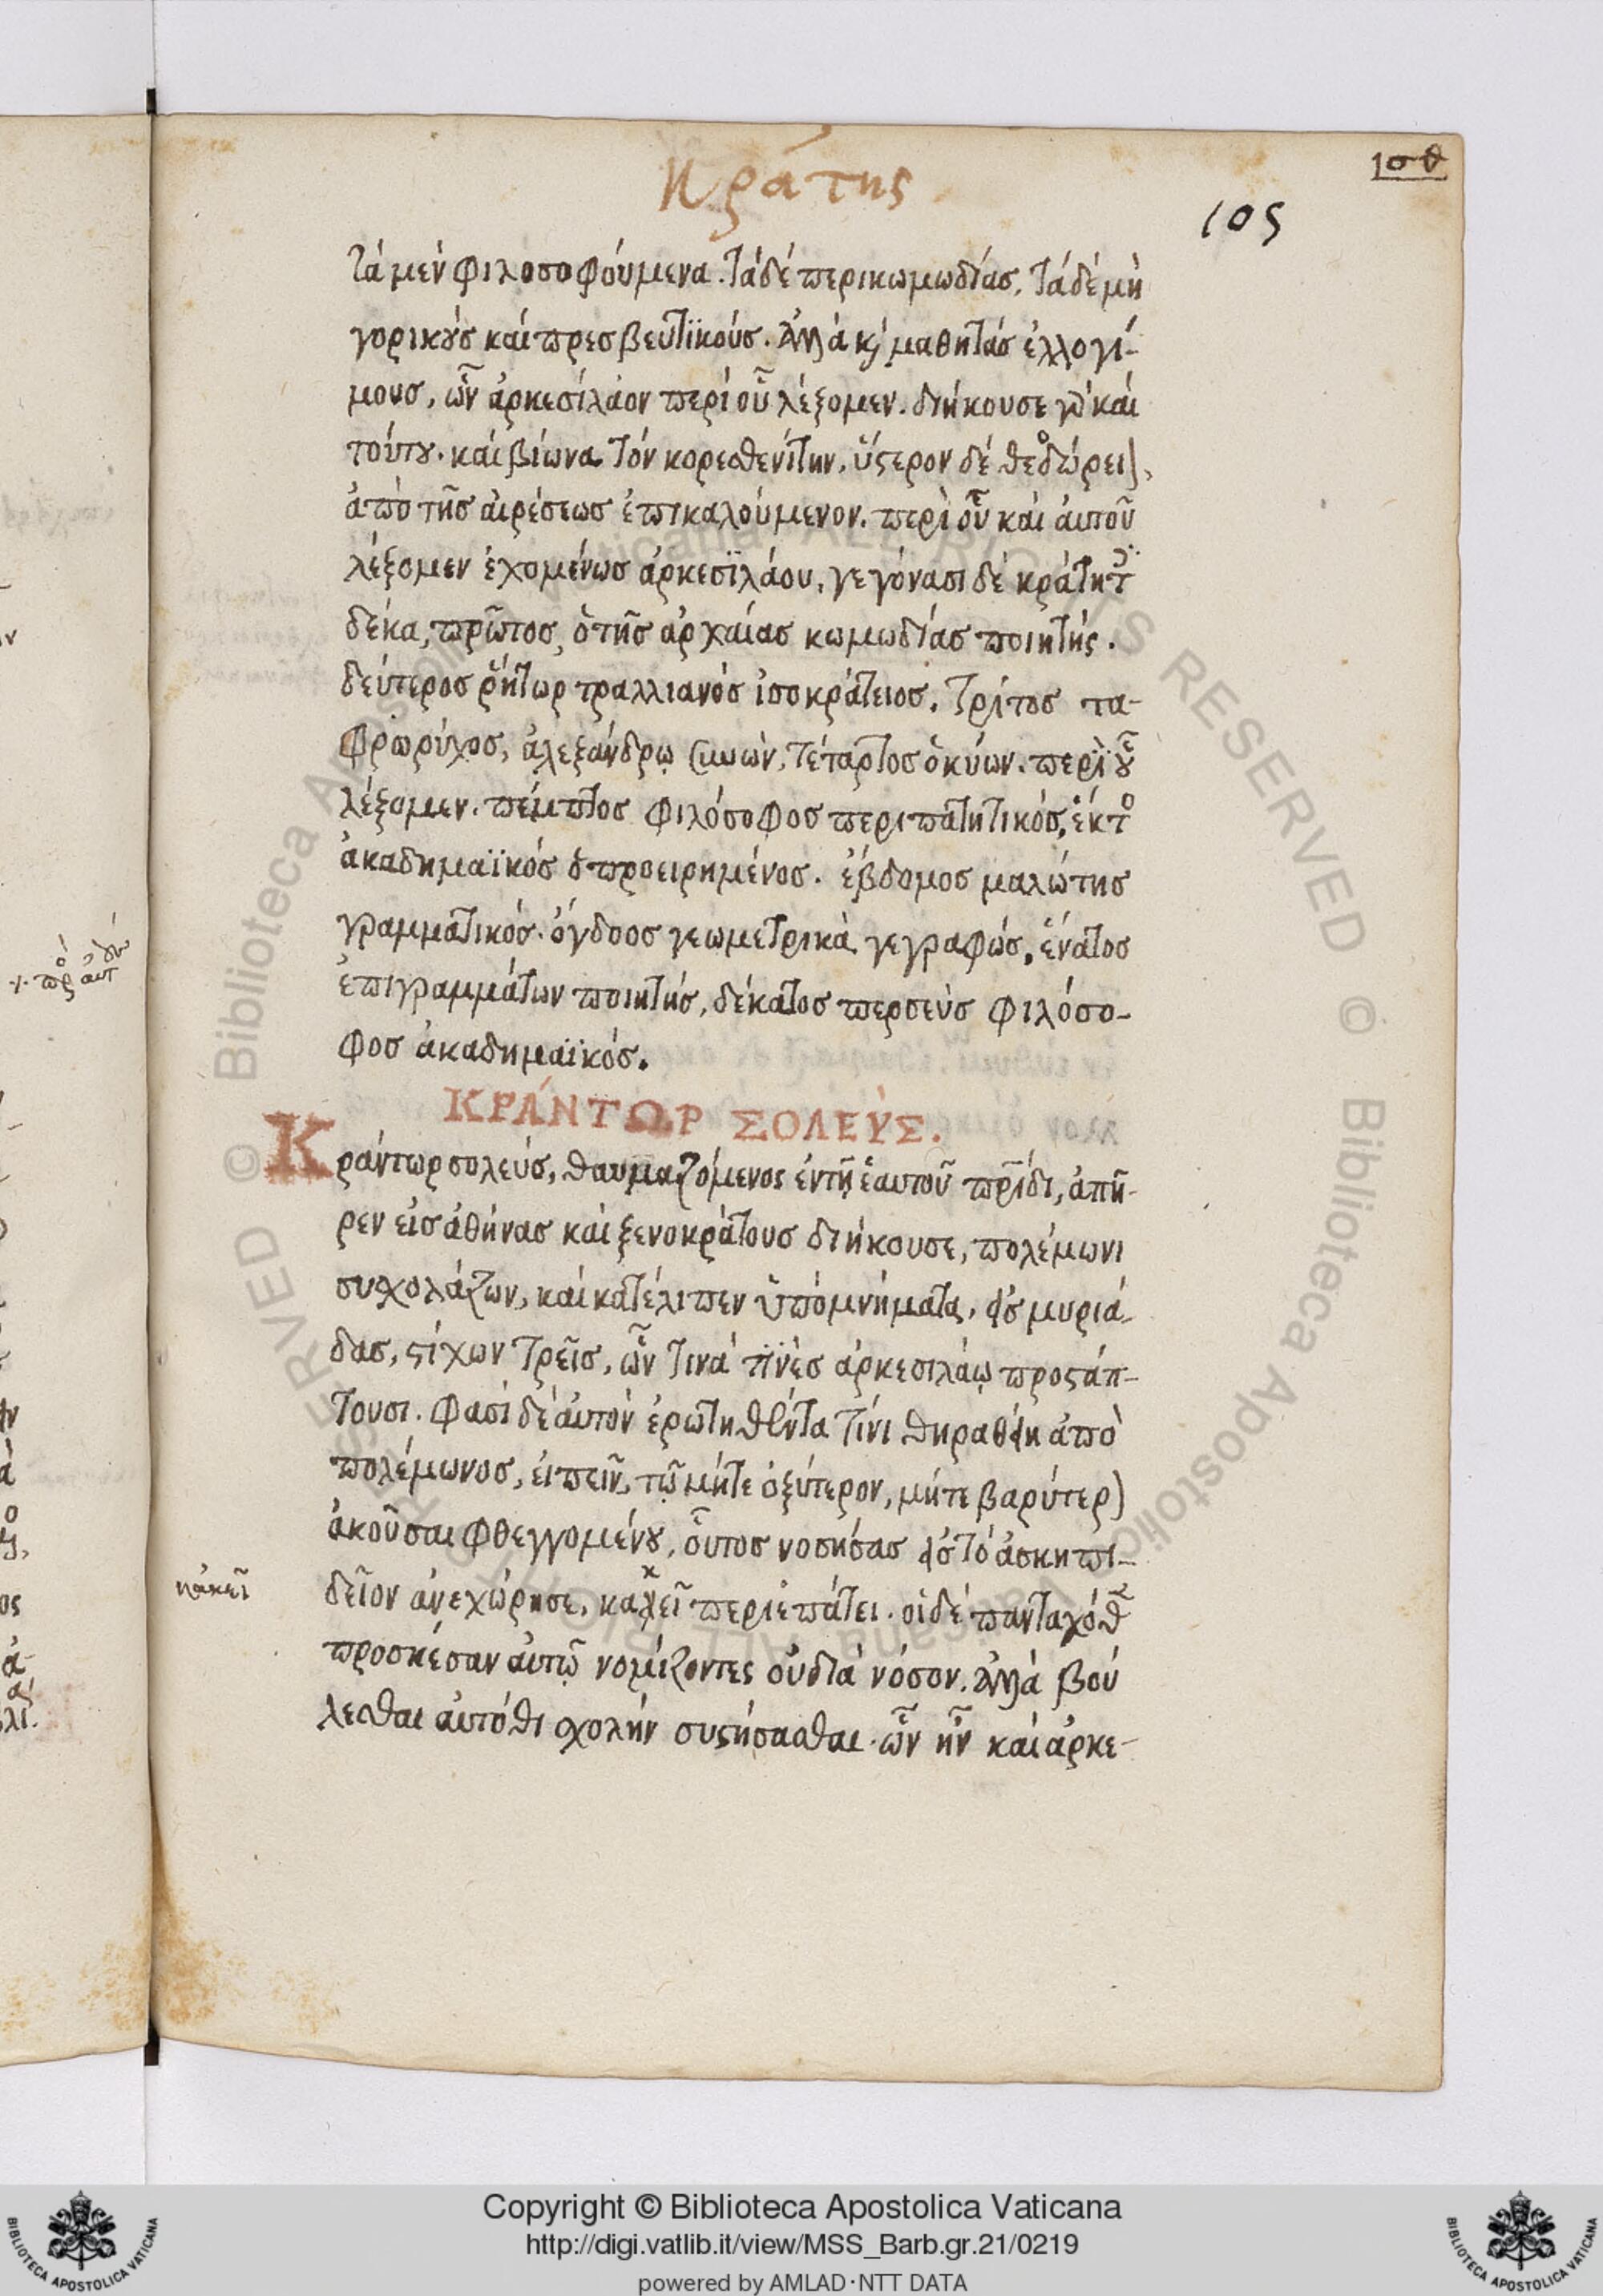 Κράτης
109
105
τὰ μὲν φιλοσοφούμενα. τὰ δέ περι κωμωδίας, τὰ δέ μη
γορικοὺς καὶ πρεσβευτϊκούς. ἀλλὰ κ μαθητὰς ἐλλογί-
μους, ὧν ἀρκεσίλαον περὶ οὗ λέξομεν. διήκουσε γὰρ καὶ
τούτου. καὶ βίωνα τὸν κορεσθενίτην, ὕστερον δέ θεοδώρειον,
ἀπὸ τῆς αἱρέσεως ἐπικαλούμενον. περὶ οὗ καὶ αὐτοῦ
λέξομεν ἐχομένως ἀρκεσϊλάου, γεγόνασι δέ κράτητες
δέκα, πρῶτος, ὁ τῆς ἀρχαίας κωμωδίας ποιητής.
δεύτερος ῥήτωρ τραλλιανός ἰσοκράτειος. τρίτος τα-
φρωρύχος, ἀλεξάνδρῳ συνών, τέταρτος ὁ κύων. περὶ οὗ
λέξομεν. πέμπτος φιλόσοφος περιπατητικός, ἕκτος
ἀκαδημαϊκός ὁ προειρημένος. ἕβδομος μαλώτης
γραμματικός. ὄγδοος γεωμετρικὰ γεγραφώς, ἔνατος
ἐπιγραμμάτων ποιητής, δέκατος περσεύς φιλόσο-
φος ἀκαδημαϊκός.
ΚΡΆΝΤΩΡ ΣΟΛΕΎΣ.
Κράντωρ σολεύς, θαυμαζόμενος ἐν τῇ ἑαυτοῦ πρίδι, ἀπῆ-
ρεν εἰς ἀθήνας καὶ ξενοκράτους διήκουσε, πολέμωνι
συσχολάζων, καὶ κατέλιπεν ὑπομνήματα, εἰς μυριά-
δας, στίχων τρεῖς, ὧν τινὰ τϊνὲς ἀρκεσιλάῳ προσάπ-
τουσι. φασὶ δὲ αὐτὸν ἐρωτηθέντα τίνι θηραθείη ἀπὸ
πολέμωνος, εἰπεῖν, τῷ μήτε ὀξύτερον, μήτε βαρύτερον
ἀκοῦσαι φθεγγομένου, οὗτος νοσήσας εἰς τὸ ἀσκηπι-
κἀκεῖ
δεῖον ἀνεχώρησε, κακεῖ περιεπάτει. οἱ δέ πανταχόθεν
προσηέσαν αὐτῷ νομίζοντες οὐ διὰ νόσον. ἀλλὰ βού
λεσθαι αὐτόθι σχολήν συστήσασθαι. ὧν ἦν καὶ ἀρκε-
Copyright © Biblioteca Apostolica Vaticana
http://digi.vatlib.it/view/MSS_Barb.gr.21/0219
powered by AMLAD·NTT DATA